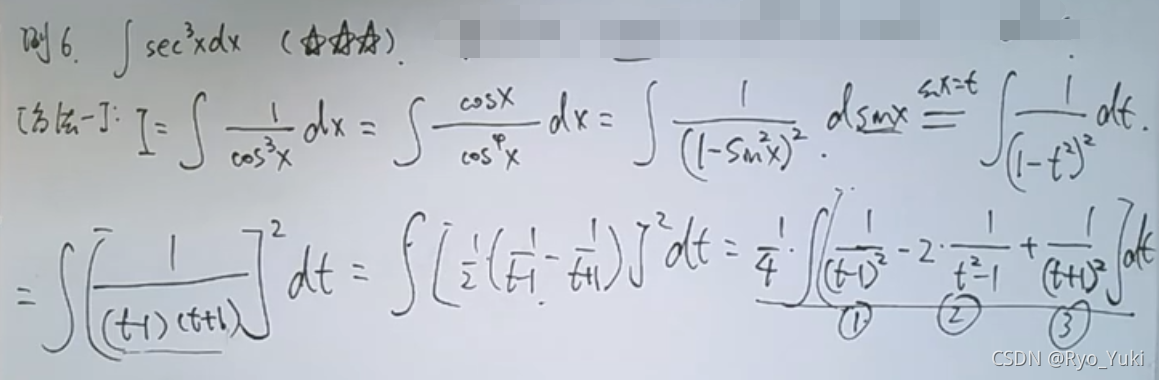 例6. ∫ sec³xdx (☆☆☆).
[方法一]: I = ∫ 1/cos³x dx = ∫ cosx/cos⁴x dx = ∫ 1/(1-sin²x)². dsinx =(sinx=t)= ∫ 1/(1-t²)² dt.
= ∫ [1/((t-1)(t+1))]² dt = ∫ [1/2·(1/(t-1) - 1/(t+1))]² dt = 1/4·∫ [1/(t-1)² - 2·1/(t²-1) + 1/(t+1)²] dt
① ② ③
CSDN @Ryo_Yuki